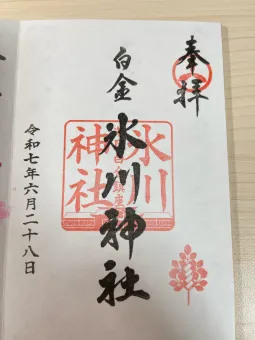 奉拝
白金
氷川神社
令和七年六月二十八日
氷川
神社